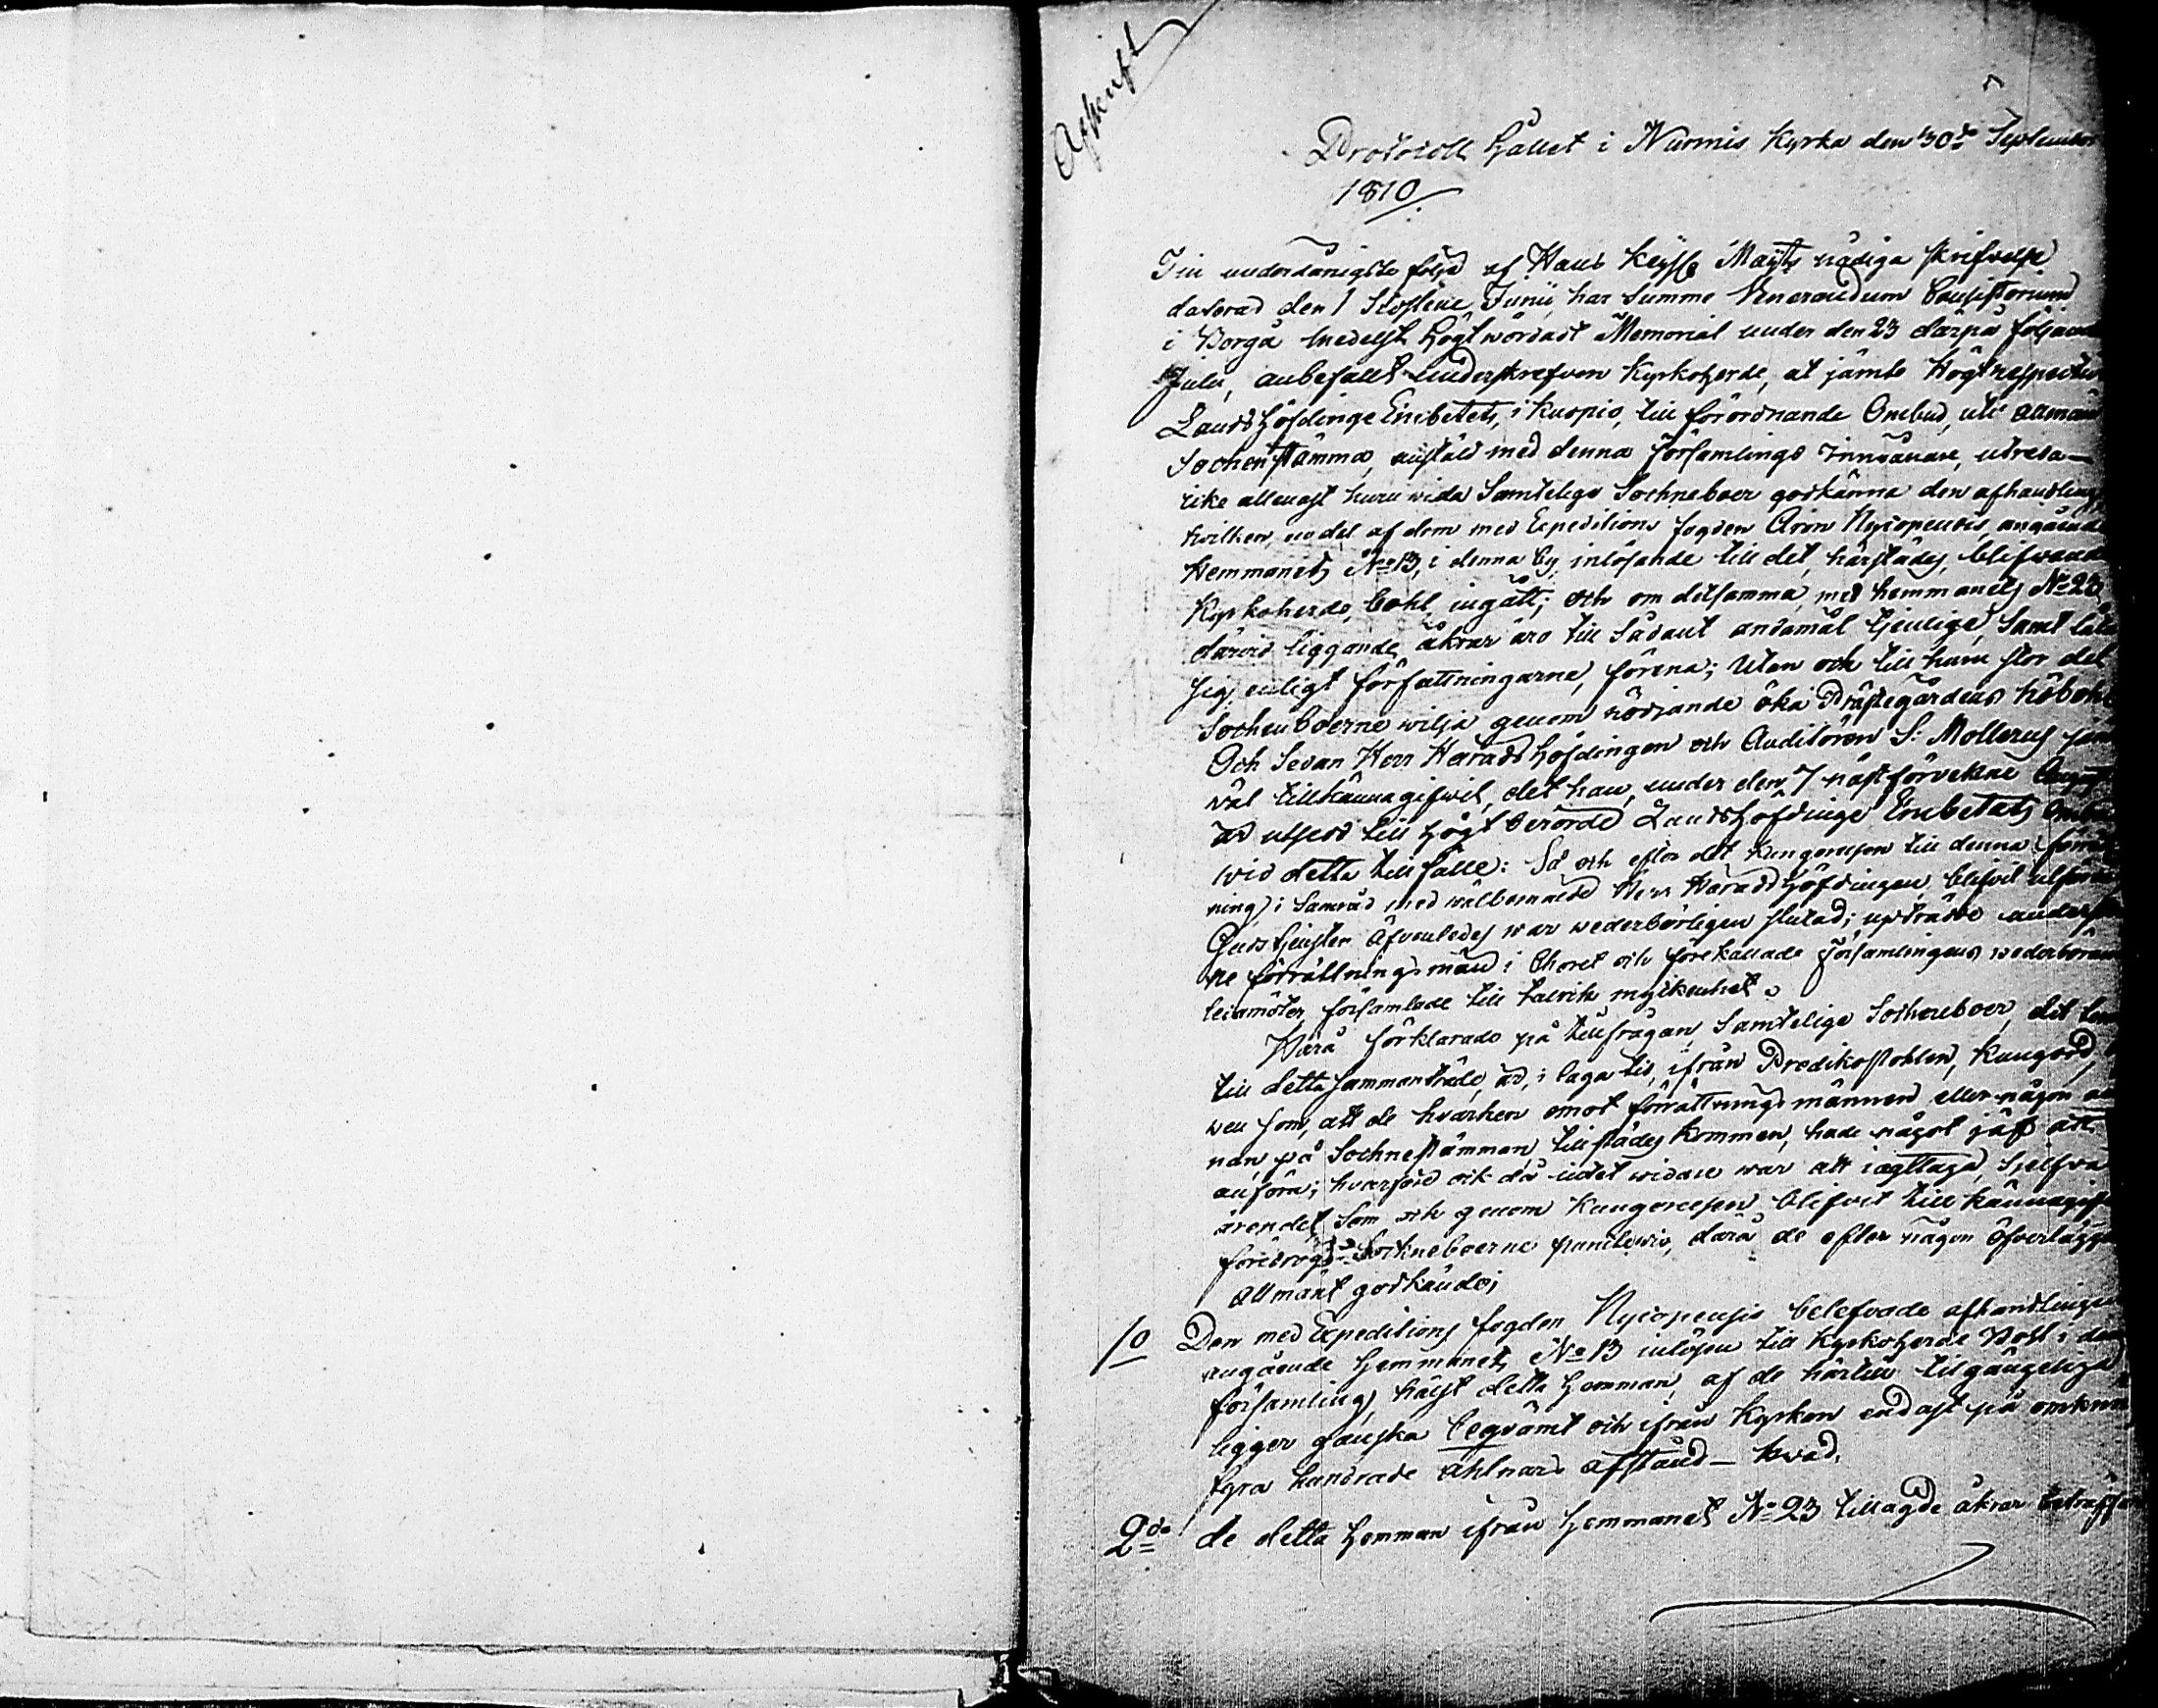 Afskrift
Protocoll hållet i Nurmis Kyrka den 30de September
1810
I in underdånigste följd af Hans Keijsse Majts nådiga skrifvelse
daterad den 1 Sistledne Junii, har Summe Venerandum Consistorium
i Borgå medelst högtwördadt Memorial under den 23 därpå följande
Julii, anbefallt underskrefven Kyrkoherde, at jämte Högtrespective
LandsHöfdinge Embetets, i Kuopio, till förordnande Ombud, uti allmän
Sochnestämma, anstäld med denna Församlings Innevånare, utreda —
icke allenast huru wida Samtelige Sochneboer godkänna den afhandling
hvilken, en del af dem med Expeditions fogden Aron Nycopensis, angående
Hemmanets No 13, i denna by, inlösande till det, härstädes, blifwande
Kyrkoherde, bohl, ingått; och om detsamma, med hemmanets No 23,
därvid liggande åkrar äro till Sådant ändamål tjenlige, Samt låta
sig, enligt författningarne, förena; Utan och till huru stor del
Sochneboerne wilja genom rödjande öka Prästegårdens höbohl
Och Sedan Herr HäradsHöfdingen och Auditören S: Mollerus jäm
väl tillkännagifwit, det han, under den 7 nästförvekne Augusti
är utsedd till högt berörde LandsHöfdinge Embetets Ombud
wid detta tillfälle: Så och efter det Kungörelsen till denna förrätt
ning, i Samråd med wälbemälde Herr HäradsHöfdingen blifvit utfärdad
Gudstjensten Äfvenledes war wederbörligen slutad; uptrădde underskrif
ne förrättningsmän i Choret och förekallade Församlingens wederbörande
ledamöter, församlade till talrik myckenhet.
Härå förklarade på tillfrågan, Samtelige Sochneboer, det ...
till detta sammanträde, är, i laga tid, ifrån Predikostohlen, kungord,
wen som, att de hvarken emot förrättningsmännen eller någon an
nan, på Sochnestämman tillstädes kommen, hade något jäf att
anföra; hvarföre och då intet widare war att iagttaga, sjelfva
ärendet, Som och genom Kungörelsen blifvit tillkännagifvit
föredrogs Sochneboerne punctewis, därå de efter någon öfverläggning
Allmänt godkände;
1o Den med Expeditions fogden Nycopensis belefvade afhandlingen
angående Hemmanets No 13 inlösen till Kyrkoherde Bohl i denna
församling, hälst detta Hemman, af de härtill tilgängeliga
ligger ganska beqvämt och ifrån Kyrkan endast på omkring
fyra hundrade Ahlnars afstånd — hvad,
2do de detta Hemman ifrån Hemmanet No 23 tillagde åkrar beträffar